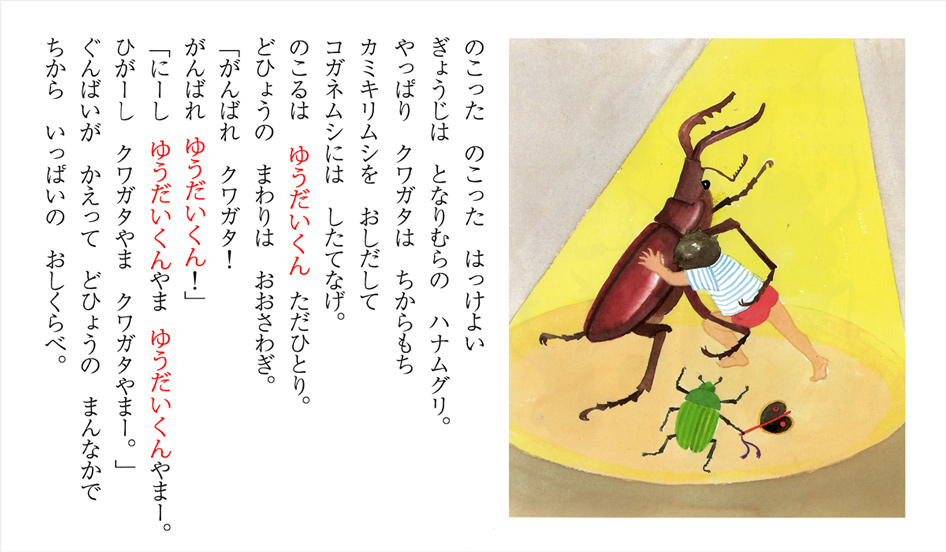 のこった　のこった　はっけよい
ぎょうじは　となりむらの　ハナムグリ。
やっぱり　クワガタは　ちからもち
カミキリムシを　おしだして
コガネムシには　したてなげ。
のこるは　ゆうだいくん　ただひとり。
どひょうの　まわりは　おおさわぎ。
「がんばれ　クワガタ！
がんばれ　ゆうだいくん！」
「にーし　ゆうだいくんやま　ゆうだいくんやまー。
ひがーし　クワガタやま　クワガタやまー。」
ぐんばいが　かえって　どひょうの　まんなかで
ちから　いっぱいの　おしくらべ。